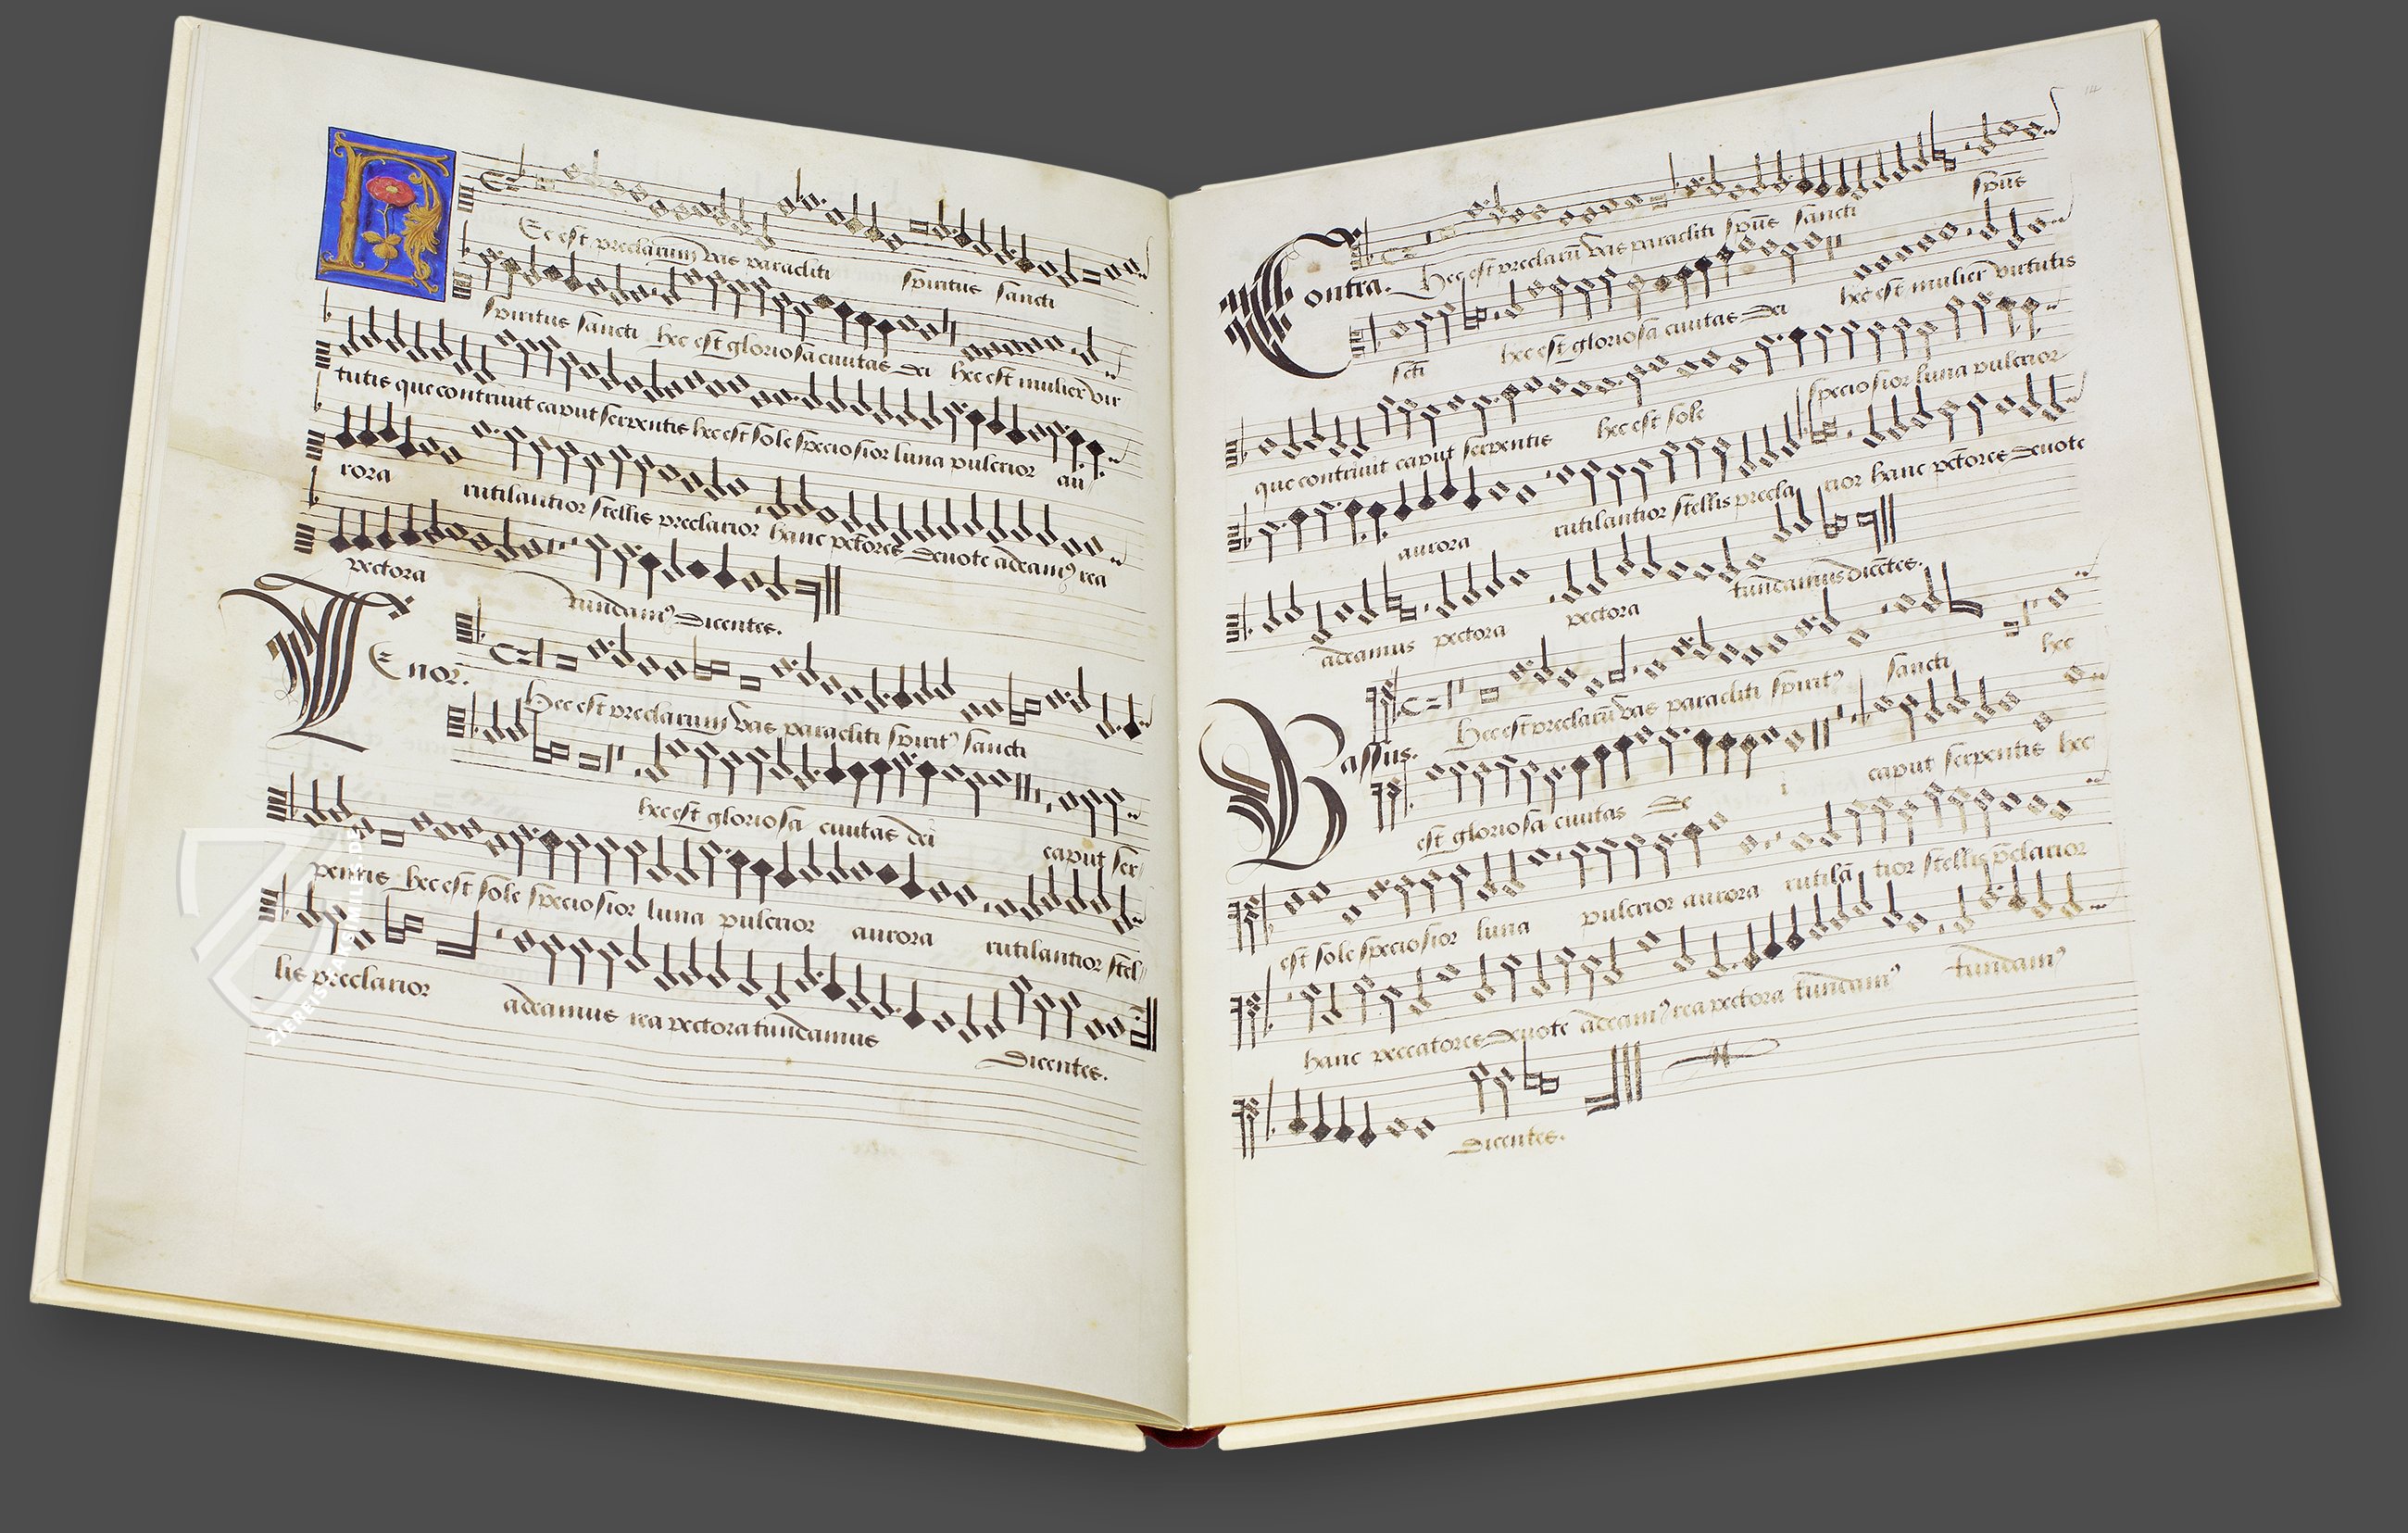 Ec est preclarum vas paracliti spiritus sancti
spiritus sancti hec est gloriosa civitas dei hec est mulier vir
tutis que contrivit caput serpentis hec est sole speciosior luna pulcrior au
rora rutilantior stellis preclarior hanc pctores devote adeamꝰ rea
pectora tundamꝰ dicentes.
Tenor.
Hec est preclarum vas paracliti spiritꝰ sancti
hec est gloriosa civitas dei caput ser
pentis hec est sole speciosior luna pulcrior aurora rutilantior stel
lis preclarior adeamus rea pectora tundamus
dicentes.
14
Contra. Hec est preclarū vas paracliti spūs sancti spūs
scti hec est gloriosa civitas dei hec est mulier virtutis
que contrivit caput serpentis hec est sole speciosior luna pulcrior
aurora rutilantior stellis precla rior hanc pctores devote
adeamus pectora pectora tundamus dicētes.
Bassus. Hec est preclarū vas paracliti spiritꝰ sancti hec
est gloriosa civitas de i caput serpentis hec
est sole speciosior luna pulcrior aurora rutilā tior stellis p̄clarior
hanc peccatores devote adeamꝰ rea pectora tundamꝰ tundamꝰ
dicentes.
ZIEREIS FAKSIMILES.DE